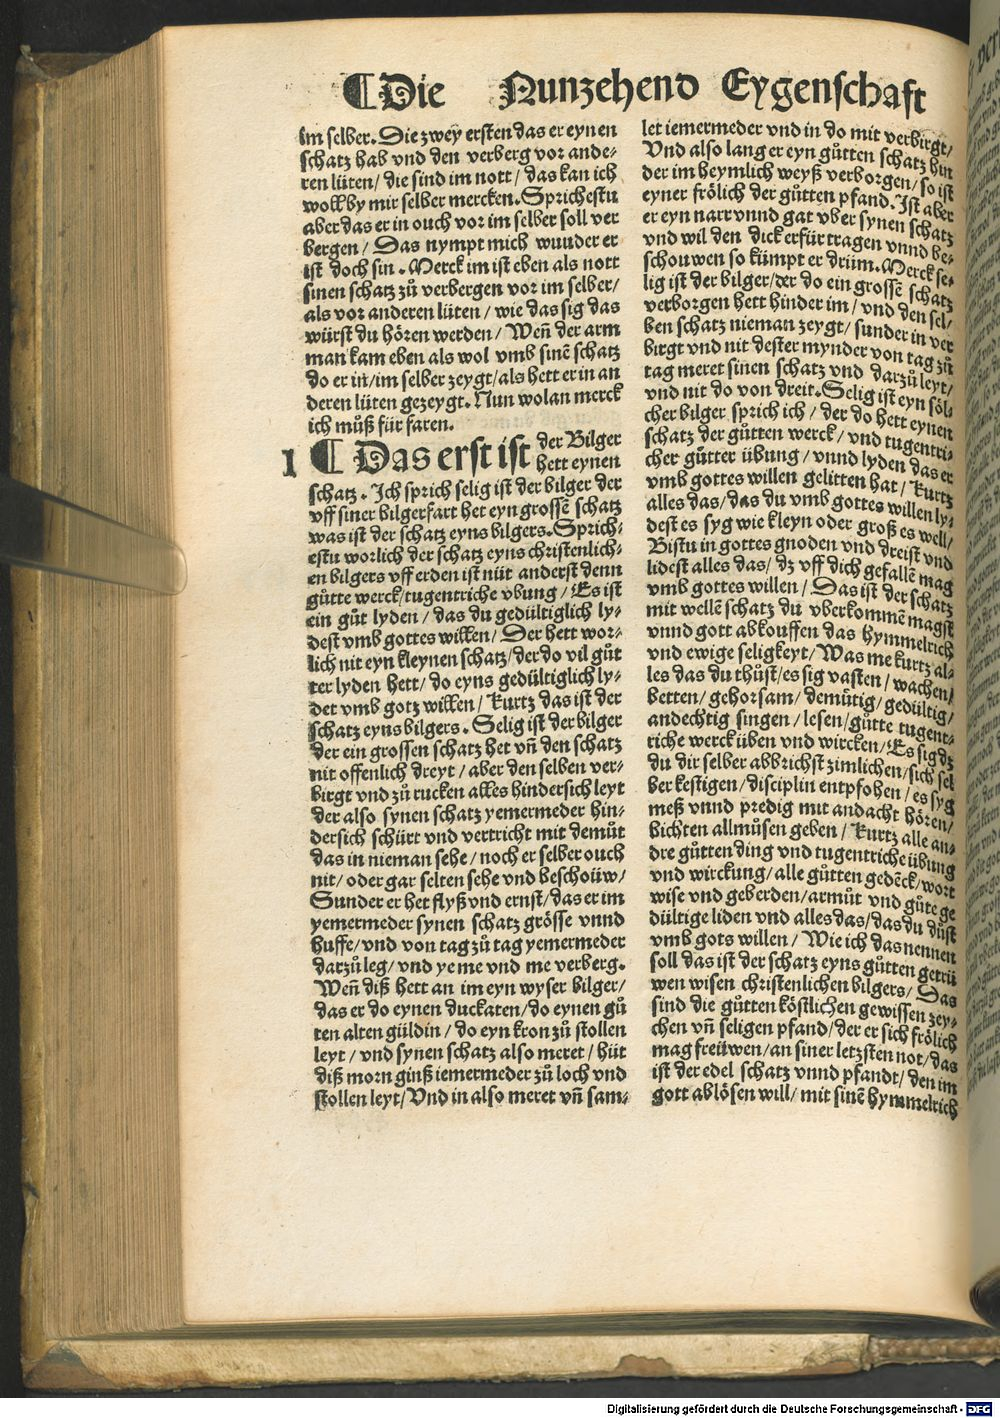 ¶Die Nunzehend Eygenschaft
im selber. Die zwey ersten das er eynen
schatz hab vnd den verberg vor ande-
ren lüten/ die sind im nott/ das kan ich
woll by mir selber mercken. Sprichestu
aber das er in ouch vor im selber soll ver
bergen/ Das nympt mich wunder er
ist doch sin. Merck im ist eben als nott
sinen schatz zů verbergen vor im selber/
als vor anderen lüten/ wie das sig das
würst du hören werden/ Weñ der arm
man kam eben als wol vmb sinē schatz
do er in/im selber zeygt/als hett er in an
deren lüten gezeygt. Nun wolan merck
ich můß für faren.
1 ¶ Das erst ist der Bilger
hett eynen
schatz. Ich sprich selig ist der bilger der
vff siner bilgerfart het eyn grossē schatz
was ist der schatz eyns bilgers. Sprich-
estu worlich der schatz eyns christenlich-
en bilgers vff erden ist nüt anderst denn
gůtte werck/tugentriche vbung/ Es ist
ein gůt lyden/ das du gedültiglich ly-
dest vmb gottes willen/ Der hett wor-
lich nit eyn kleynen schatz/der do vil gůt
ter lyden hett/ do eyns gedültiglich ly-
det vmb gotz willen/ Kurtz das ist der
schatz eyns bilgers. Selig ist der bilger
der ein grossen schatz het vñ den schatz
nit offenlich dreyt/ aber den selben ver-
birgt vnd zů rucken alles hindersich leyt
der also synen schatz yemermeder hin-
dersich schürt vnd vertricht mit demůt
das in nieman sehe/ noch er selber ouch
nit/ oder gar selten sehe vnd beschoüw/
Sunder er het flyß vnd ernst/das er im
yemermeder synen schatz grösse vnnd
buffe/vnd von tag zů tag yemermeder
darzů leg/vnd ye me vnd me verberg.
Weñ diß hett an im eyn wyser bilger/
das er do eynen duckaten/do eynen gů
ten alten güldin/ do eyn kron zů stollen
leyt/ vnd synen schatz also meret/ hüt
diß morn ginß iemermeder zů loch vnd
stollen leyt/Vnd in also meret vñ sam-
let iemermeder vnd in do mit verbirgt/
Vnd also lang er eyn gůtten schatz hin
der im heymlich weyß verborgen/ so ist
eyner frölich der gůtten pfand. Ist aber
er eyn narr vnnd gat vber synen schatz
vnd wil den dick erfür tragen vnnd be-
schouwen so kümpt er drum. Merck se-
lig ist der bilger/der do ein grossē schatz
verborgen hett hinder im/ vnd den sel-
ben schatz nieman zeygt/ sunder in ver
birgt vnd nit dester mynder von tag zů
tag meret sinen schatz vnd darzů leyt/
vnd nit do von dreit. Selig ist eyn söl-
cher bilger sprich ich/ der do hett eynen
schatz der gůtten werck/ vnd tugentri-
cher gůtter übung/ vnnd lyden das er
vmb gottes willen gelitten hat/ Kurtz
alles das/das du vmb gottes willen ly-
dest es syg wie kleyn oder groß es well/
Bistu in gottes gnoden vnd dreist vnd
lidest alles das/ dz vff dich gefallē mag
vmb gottes willen/ Das ist der schatz
mit wellē schatz du vberkommē magst
vnnd gott abkouffen das hymmelrich
vnd ewige seligkeyt/ Was me kurtz al-
les das du thůst/es sig vasten/ wachen/
betten/ gehorsam/ demütig/ gedültig/
andechtig singen/ lesen/gůtte tugent-
riche werck üben vnd wircken/ Es sig dz
du dir selber abbrichst zimlichen/sich sel
ber kestigen/disciplin entpfohen/ es syg
meß vnnd predig mit andacht hören/
bichten allmůsen geben/ Kurtz alle an-
dre gůtten ding vnd tugentriche übung
vnd wirckung/ alle gůtten gedēck/ wort
wise vnd geberden/armůt vnd gůte ge
dültige liden vnd alles das/das du důst
vmb gots willen/ Wie ich das nennen
soll das ist der schatz eyns gůtten getrü
wen wisen christenlichen bilgers/ Das
sind die gůtten köstlichen gewissen zey-
chen vñ seligen pfand/der er sich frölich
mag freüwen/an siner letzsten not/das
ist der edel schatz vnnd pfandt/ den im
gott ablösen will/ mit sinē hymmelrich
Digitalisierung gefördert durch die Deutsche Forschungsgemeinschaft - DFG